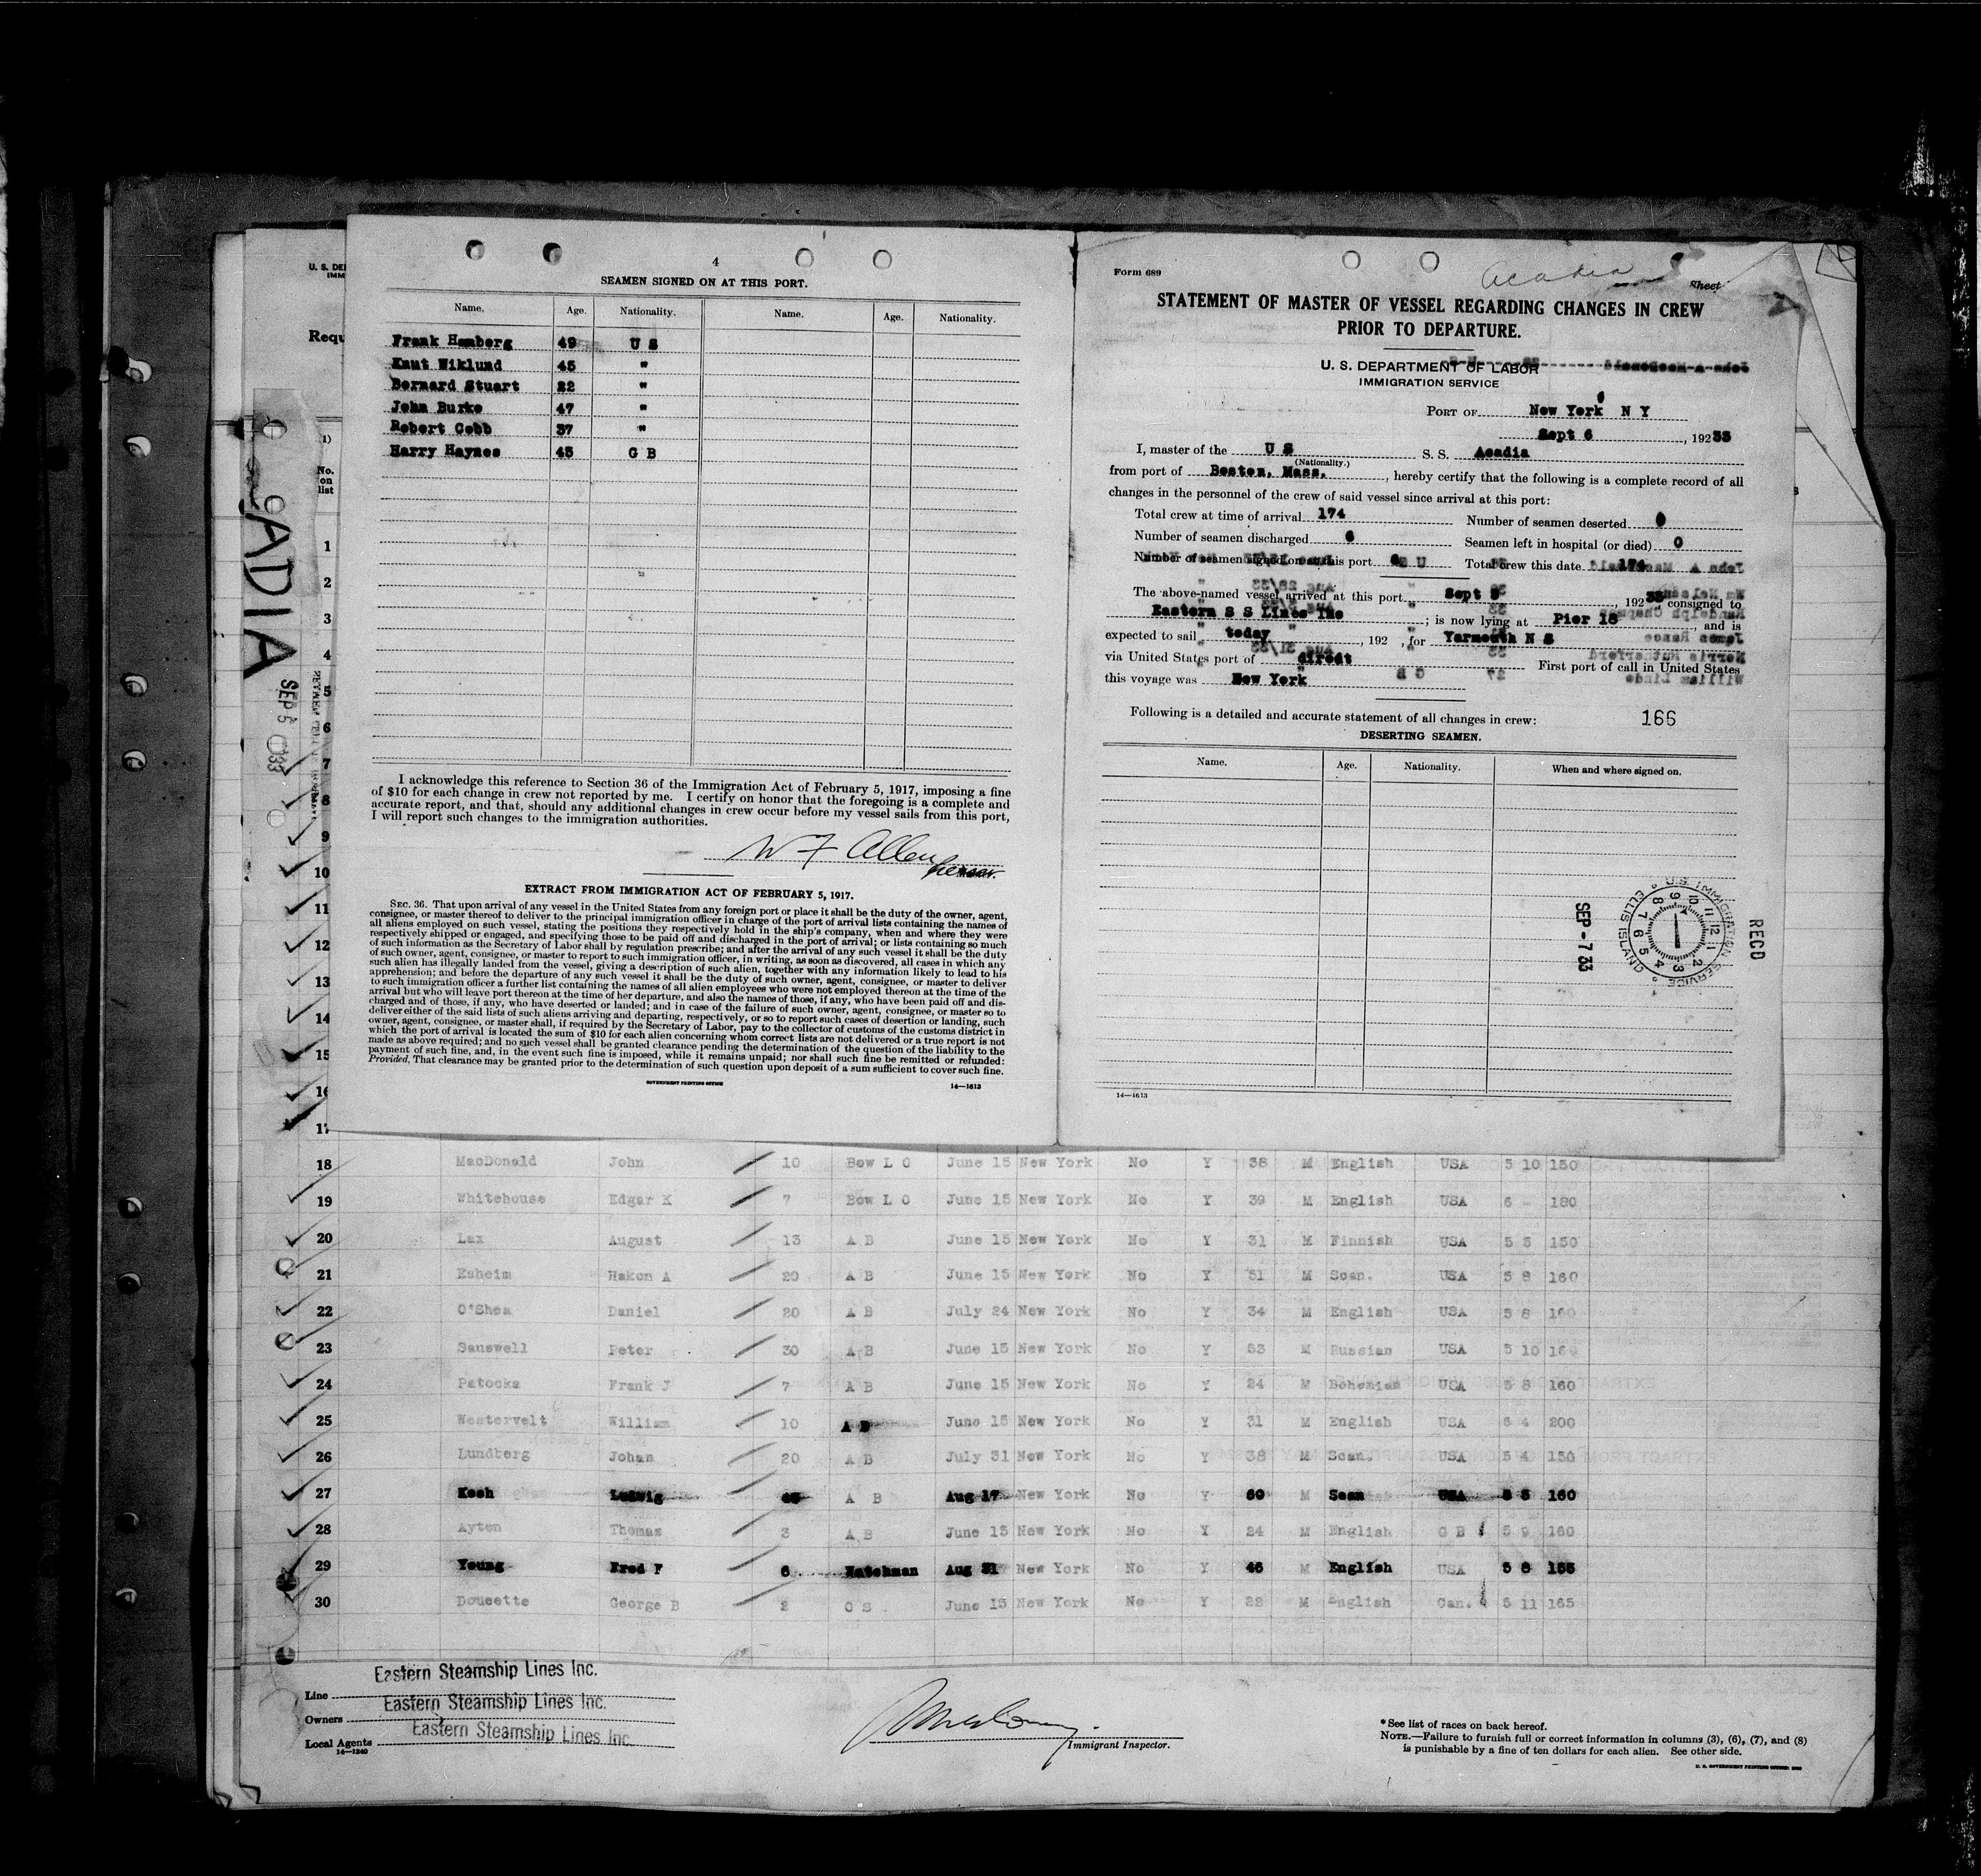 U. S. DE
IMM
Requ
1)
No.
on
list
ADIA
SEP 5
4
SEAMEN SIGNED ON AT THIS PORT.
Name. Age. Nationality. Name. Age. Nationality.
Frank Hamberg 49 U S
Knut Wiklund 45 "
Bernard Stuart 22 "
John Burke 47 "
Robert Cobb 37 "
Harry Haynes 45 G B
I acknowledge this reference to Section 36 of the Immigration Act of February 5, 1917, imposing a fine
of $10 for each change in crew not reported by me. I certify on honor that the foregoing is a complete and
accurate report, and that, should any additional changes in crew occur before my vessel sails from this port,
I will report such changes to the immigration authorities.
W F Allen
EXTRACT FROM IMMIGRATION ACT OF FEBRUARY 5, 1917.
SEC. 36. That upon arrival of any vessel in the United States from any foreign port or place it shall be the duty of the owner, agent,
consignee, or master thereof to deliver to the principal immigration officer in charge of the port of arrival lists containing the names of
all aliens employed on such vessel, stating the positions they respectively hold in the ship's company, when and where they were
respectively shipped or engaged, and specifying those to be paid off and discharged in the port of arrival; or lists containing so much
of such information as the Secretary of Labor shall by regulation prescribe; and after the arrival of any such vessel it shall be the duty
of such owner, agent, consignee, or master to report to such immigration officer, in writing, as soon as discovered, all cases in which any
such alien has illegally landed from the vessel, giving a description of such alien, together with any information likely to lead to his
apprehension; and before the departure of any such vessel it shall be the duty of such owner, agent, consignee, or master to deliver
to such immigration officer a further list containing the names of all alien employees who were not employed thereon at the time of the
arrival but who will leave port thereon at the time of her departure, and also the names of those, if any, who have been paid off and dis-
charged and of those, if any, who have deserted or landed; and in case of the failure of such owner, agent, consignee, or master so to
deliver either of the said lists of such aliens arriving and departing, respectively, or so to report such cases of desertion or landing, such
owner, agent, consignee, or master shall, if required by the Secretary of Labor, pay to the collector of customs of the customs district in
which the port of arrival is located the sum of $10 for each alien concerning whom correct lists are not delivered or a true report is not
made as above required; and no such vessel shall be granted clearance pending the determination of the question of the liability to the
payment of such fine, and, in the event such fine is imposed, while it remains unpaid; nor shall such fine be remitted or refunded:
Provided, That clearance may be granted prior to the determination of such question upon deposit of a sum sufficient to cover such fine.
GOVERNMENT PRINTING OFFICE 14—1613
Form 689 Acadia Sheet
STATEMENT OF MASTER OF VESSEL REGARDING CHANGES IN CREW
PRIOR TO DEPARTURE.
U. S. DEPARTMENT OF LABOR
IMMIGRATION SERVICE
PORT OF New York N Y
Sept 6, 1933
I, master of the U S S. S. Acadia
(Nationality.)
from port of Boston, Mass., hereby certify that the following is a complete record of all
changes in the personnel of the crew of said vessel since arrival at this port:
Total crew at time of arrival 174 Number of seamen deserted 0
Number of seamen discharged 6 Seamen left in hospital (or died) 0
Number of seamen signed on at this port 6 Total crew this date 174
The above-named vessel arrived at this port Sept 5, 1933, consigned to
Eastern S S Lines Inc; is now lying at Pier 18, and is
expected to sail today, 192 , for Yarmouth N S
via United States port of direct First port of call in United States
this voyage was New York
Following is a detailed and accurate statement of all changes in crew: 166
DESERTING SEAMEN.
Name. Age. Nationality. When and where signed on.
RECD
U.S. IMMIGRATION SERVICE
ELLIS ISLAND
SEP - 7 33
14—1613
1
2
3
4
5
6
7
8
9
10
11
12
13
14
15
16
17
18 MacDonald John 10 Bow L O June 15 New York No Y 38 M English USA 5 10 150
19 Whitehouse Edgar K 7 Bow L O June 15 New York No Y 39 M English USA 6 - 180
20 Lax August 13 A B June 15 New York No Y 31 M Finnish USA 5 5 150
21 Esheim Hakon A 20 A B June 15 New York No Y 51 M Scan. USA 5 8 160
22 O'Shea Daniel 20 A B July 24 New York No Y 34 M English USA 5 8 160
23 Sauswell Peter 30 A B June 15 New York No Y 53 M Russian USA 5 10 160
24 Patocka Frank J 7 A B June 15 New York No Y 24 M Bohemian USA 5 8 160
25 Westervelt William 10 A B June 15 New York No Y 31 M English USA 6 4 200
26 Lundberg Johan 20 A B July 31 New York No Y 38 M Scan. USA 5 4 150
27 Koch Ludwig 45 A B Aug 17 New York No Y 60 M Scan USA 5 5 160
28 Ayton Thomas 3 A B June 15 New York No Y 24 M English G B 5 9 160
29 Young Fred F 6 Watchman Aug 31 New York No Y 46 M English USA 5 8 155
30 Doucette George B 2 O S June 15 New York No Y 22 M English Can. 5 11 165
Line Eastern Steamship Lines Inc.
Owners Eastern Steamship Lines Inc.
Local Agents Eastern Steamship Lines Inc.
14—1240
Immigrant Inspector.
*See list of races on back hereof.
NOTE.—Failure to furnish full or correct information in columns (3), (6), (7), and (8)
is punishable by a fine of ten dollars for each alien. See other side.